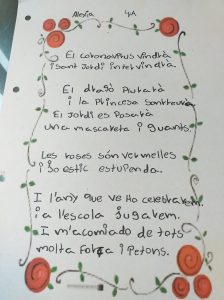 Alexia 4A
El coronavirus vindrà
i sant Jordi intervindrà.
El dragó Putarà
i la Princesa
El Jordi es Posarà
una mascareta i guants.
Les roses són vermelles
i Jo estic estupenda.
I l'any que ve Ho celebrarem
i a l'escola jugarem.
I m'acomiado de tots
molta força i Petons.